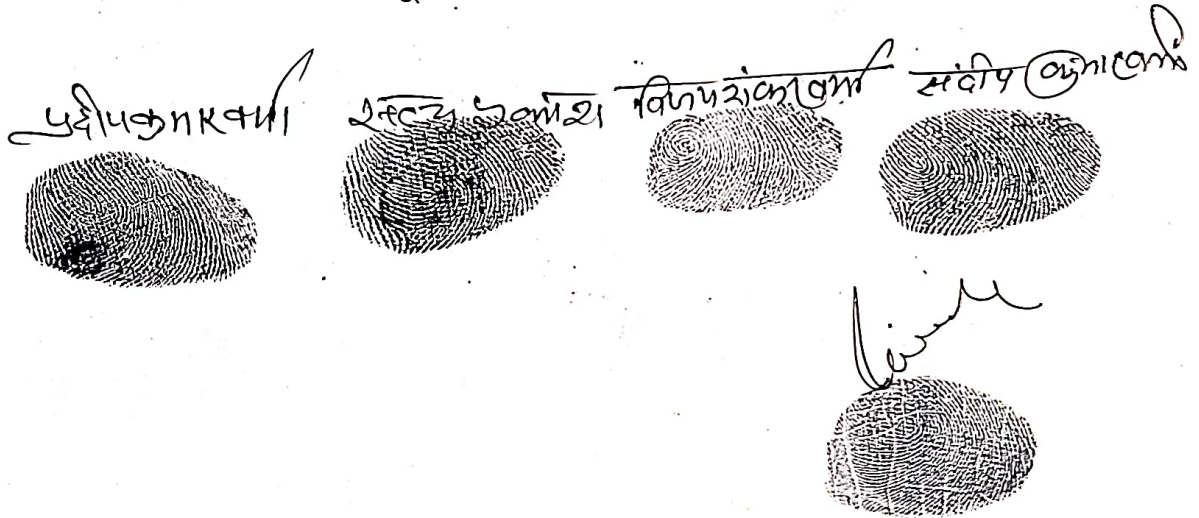 प्रदीपकुमार वर्मा सत्य प्रकाश विजय शंकर वर्मा संदीप कुमार वर्मा